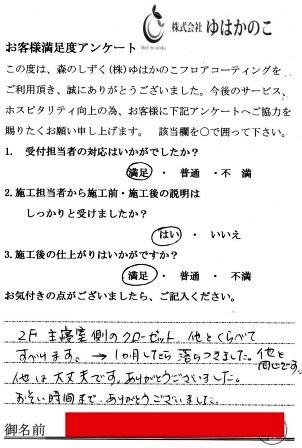 株式会社 ゆはかのこ
お客様満足度アンケート
この度は、森のしずく(株)ゆはかのこフロアコーティングを
ご利用頂き、誠にありがとうございました。今後のサービス、
ホスピタリティ向上の為、お客様に下記アンケートへご協力を
賜りたくお願い申し上げます。 該当欄を○で囲って下さい。
1. 受付担当者の対応はいかがでしたか?
満足 ・ 普通 ・ 不満
2.施工担当者から施工前・施工後の説明は
しっかりと受けましたか?
はい ・ いいえ
3.施工後の仕上がりはいかがですか?
満足 ・ 普通 ・ 不満
お気付きの点がございましたら、ご記入ください。
2F 主寝室側のクローゼット、他とくらべて
すべります。→1か月したら落ちつきました。他と同じです。
他は大丈夫です。ありがとうございました。
おそい時間まで、ありがとうございました。
御名前